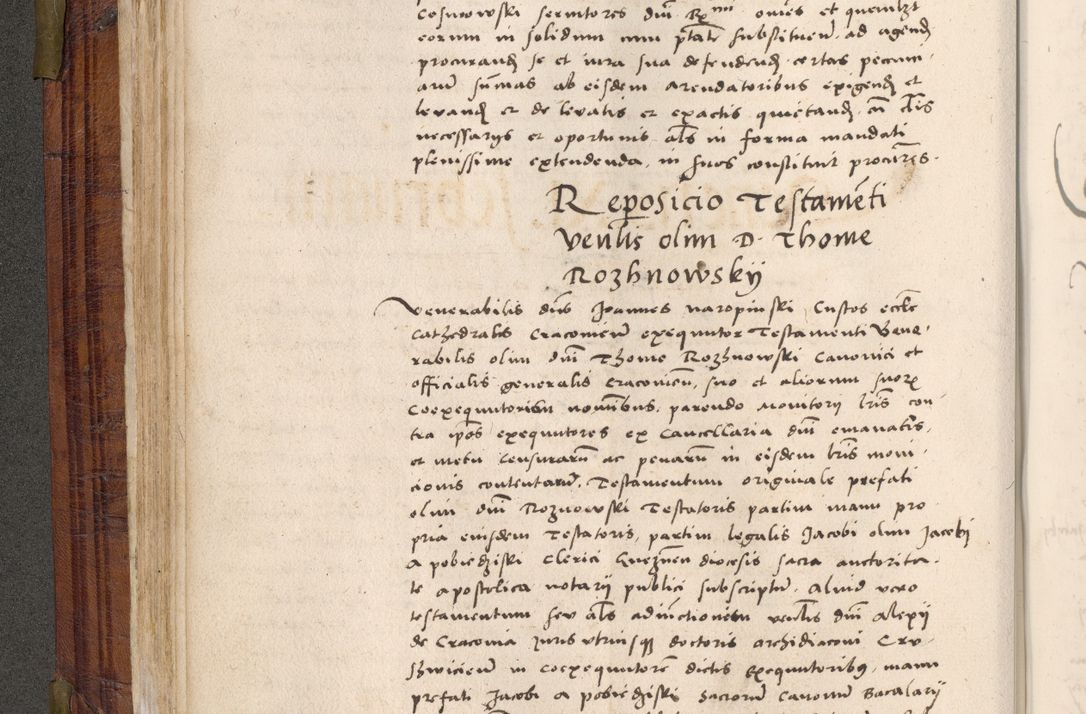 Cosnowski servitores dni Rmi omes et quemlibt
eorum in solidum cum ptate substituen, ad agend
procurand se et iura sua defendend certas pecuni
arum summas ab eisdem arendatoribus exigend et
levand et de levatis et exactis quietand cu aliis
necessarys et oportunis als in forma mandati
plenissime extendenda, in suos constituit procures.
Reposicio Testamenti
venlis olim D. Thome
Rozhnowskij
Venerabilis dns Joannes naropinski Custos eccle
Cathedralis Cracovien exequutor Testamenti Vene-
rabilis olim dni Thome Rozhnowski Canonici et
officialis generalis Cracovien, suo et aliorum suor
Coexequutorum nominibus, parendo monitorij lris con
tra ipos exequutores ex Cancellaria dni emanatis,
et metu censurarum ac penarum in eisdem lris moni-
cionis contentarum, Testamentum originale prefati
olim dni Roznowski Testatoris partim manu pro
pria eiusdem Testatoris, partim legalis Jacobi olim Jacobi
a pobiedziski Clerici Gneznen diocesis sacra auctorita-
te apostolica notarij publici subscriptum, aliud vero
testamentum seu als adiunctionem venlis dni Alexij
de Cracovia Juris utriusq doctoris archidiaconi Cru-
shwicien in coexequutore dictis exequutoribus, manu
prefati Jacobi a pobiedziski sacrorum Canonum Bacalarij